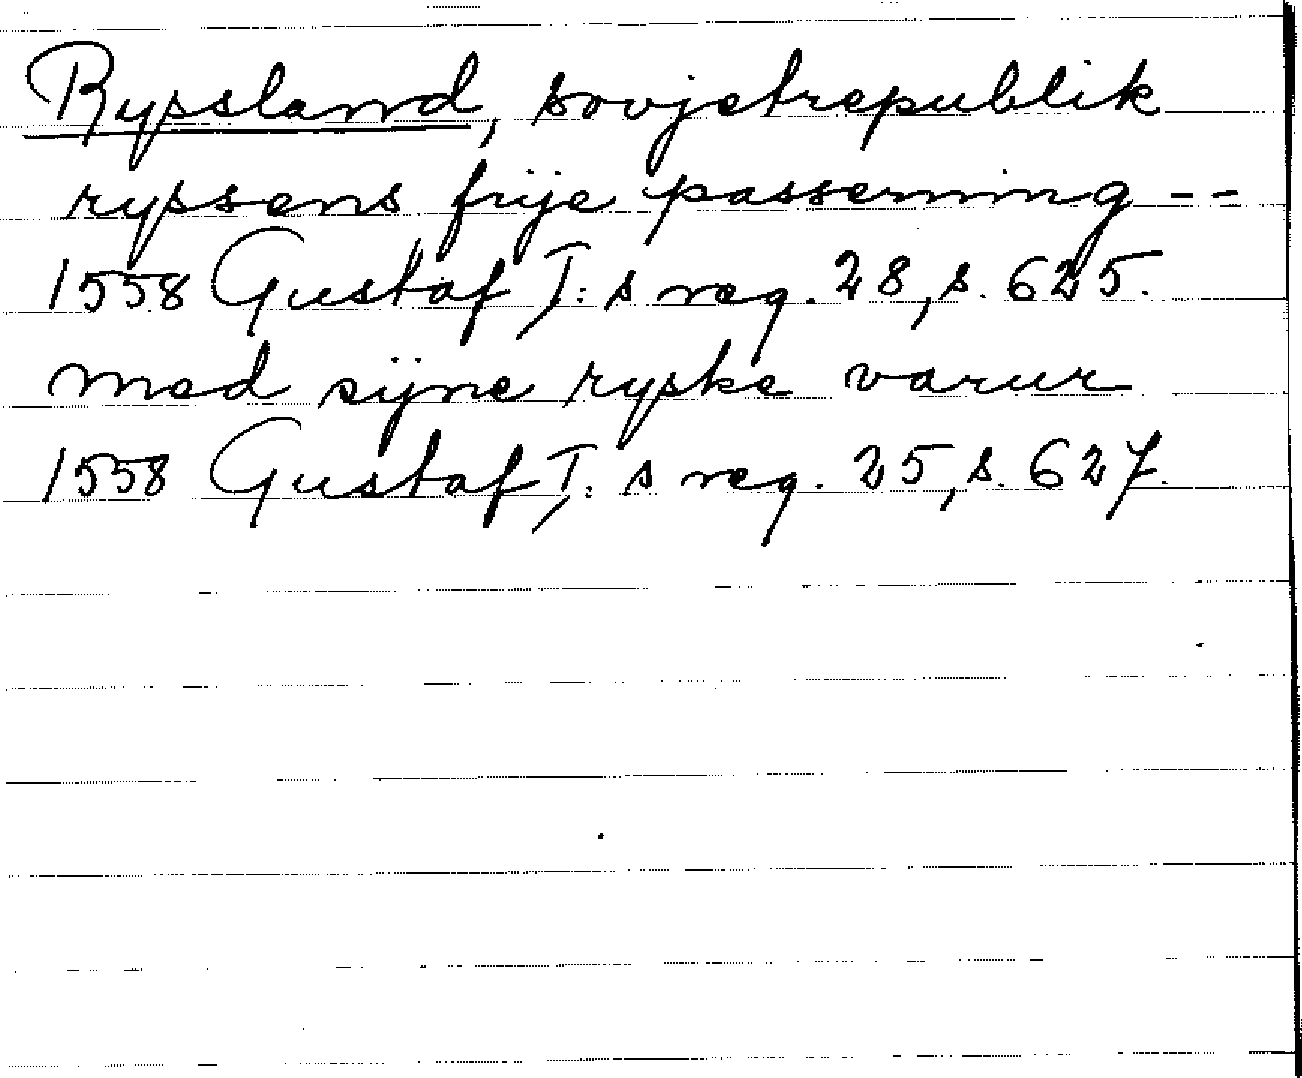 Ryssland, sovjetrepublik
ryssens frije passerning --
1558 Gustaf I:s reg. 28, s. 625.
med sijne ryske varur
1558 Gustaf I:s reg. 25, s. 627.